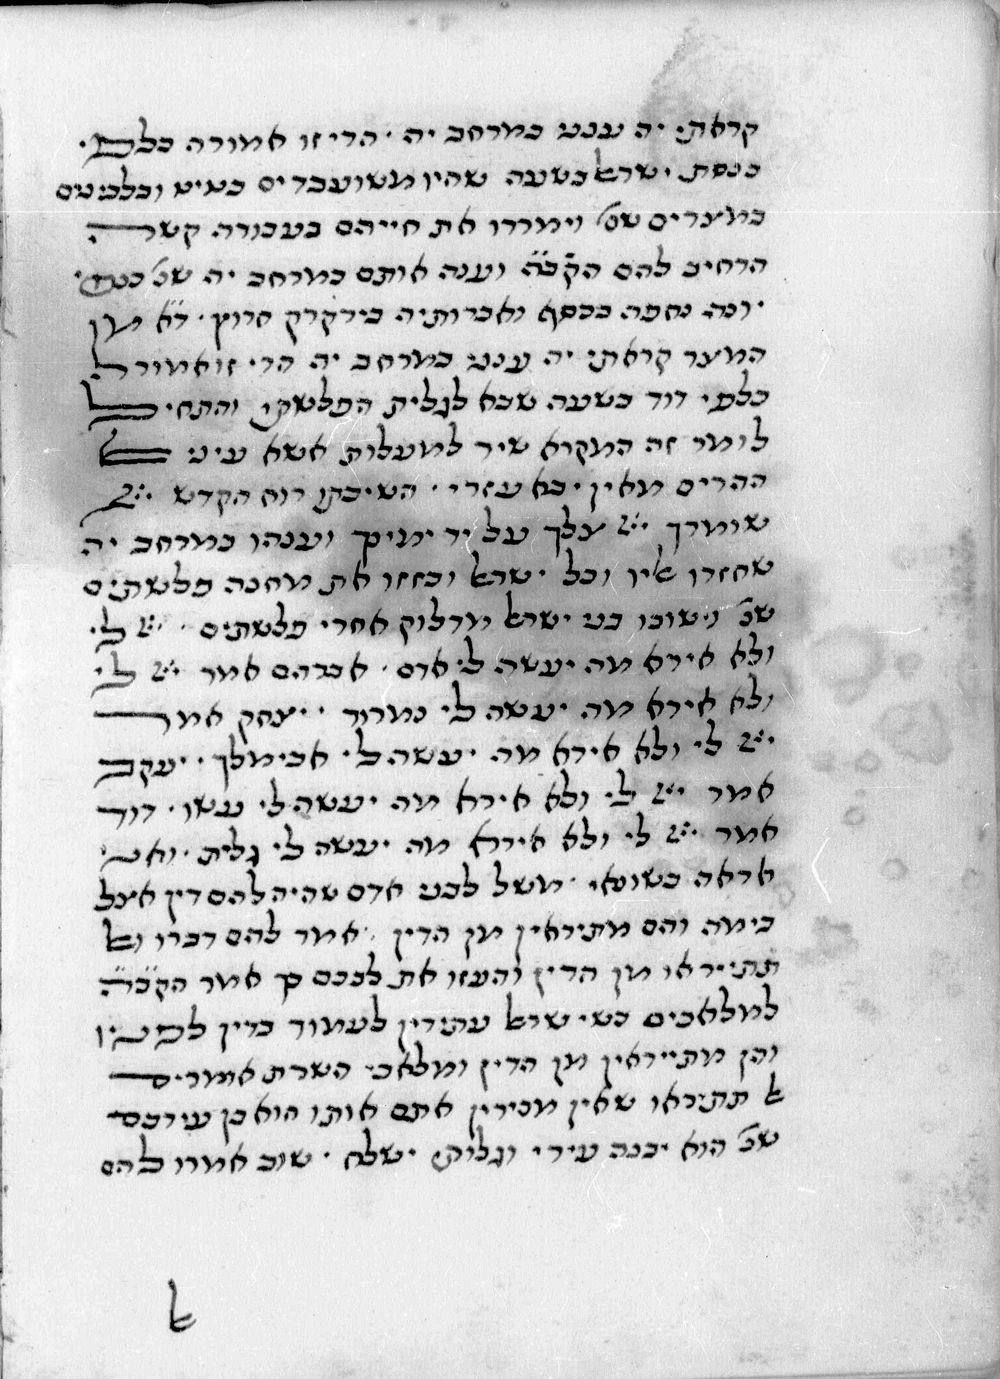 קראתי יה ענני במרחב יה · הרי זו אמורה כלפי ·
כנסת ישראל בשעה שהיו משועבדים בטיט ובלבנים
במצרים שנ' וימררו את חייהם בעבודה קשה
הרחיב להם הקב"ה וענה אותם במרחב יה שנ' כנפי
יונה נחפה בכסף ואברותיה בירקרק חרוץ · ד"א מן
המצר קראתי יה ענני במרחב יה הרי זו אמורה
כלפי דוד בשעה שבא לגלית הפלשתי והתחיל
לומר זה המקרא שיר למעלות אשא עיני אל
ההרים מאין יבא עזרי · השיבתו רוח הקדש ייי
שומרך ייי צלך על יד ימינך וענהו במרחב יה
שחזרו אליו וכל ישראל ובזזו את מחנה פלשתים
שנ' וישובו בני ישראל מדלוק אחרי פלשתים · ייי לי
ולא אירא מה יעשה לי אדם · אברהם אמר ייי לי
ולא אירא מה יעשה לי נמרוד · יצחק אמר
ייי לי ולא אירא מה יעשה לי אבימלך · יעקב
אמר ייי לי ולא אירא מה יעשה לי עשו · דוד
אמר ייי לי ולא אירא מה יעשה לי גלית · ואני
אראה בשונאי · משל לבני אדם שהיה להם דין אצל
בימה והם מתיראין מן הדין · אמר להם דברו ואל
תתייראו מן הדין והעזו את לבבכם כך אמר הקב"ה
למלאכים כשישראל עתידין לעמוד בדין לפניו
והן מתייראין מן הדין ומלאכי השרת אומרים
אל תתיראו שאין מכירין אתם אותו הוא בן עירכם
שנ' הוא יבנה עירי וגלותי ישלח · שוב אמרו להם
אל